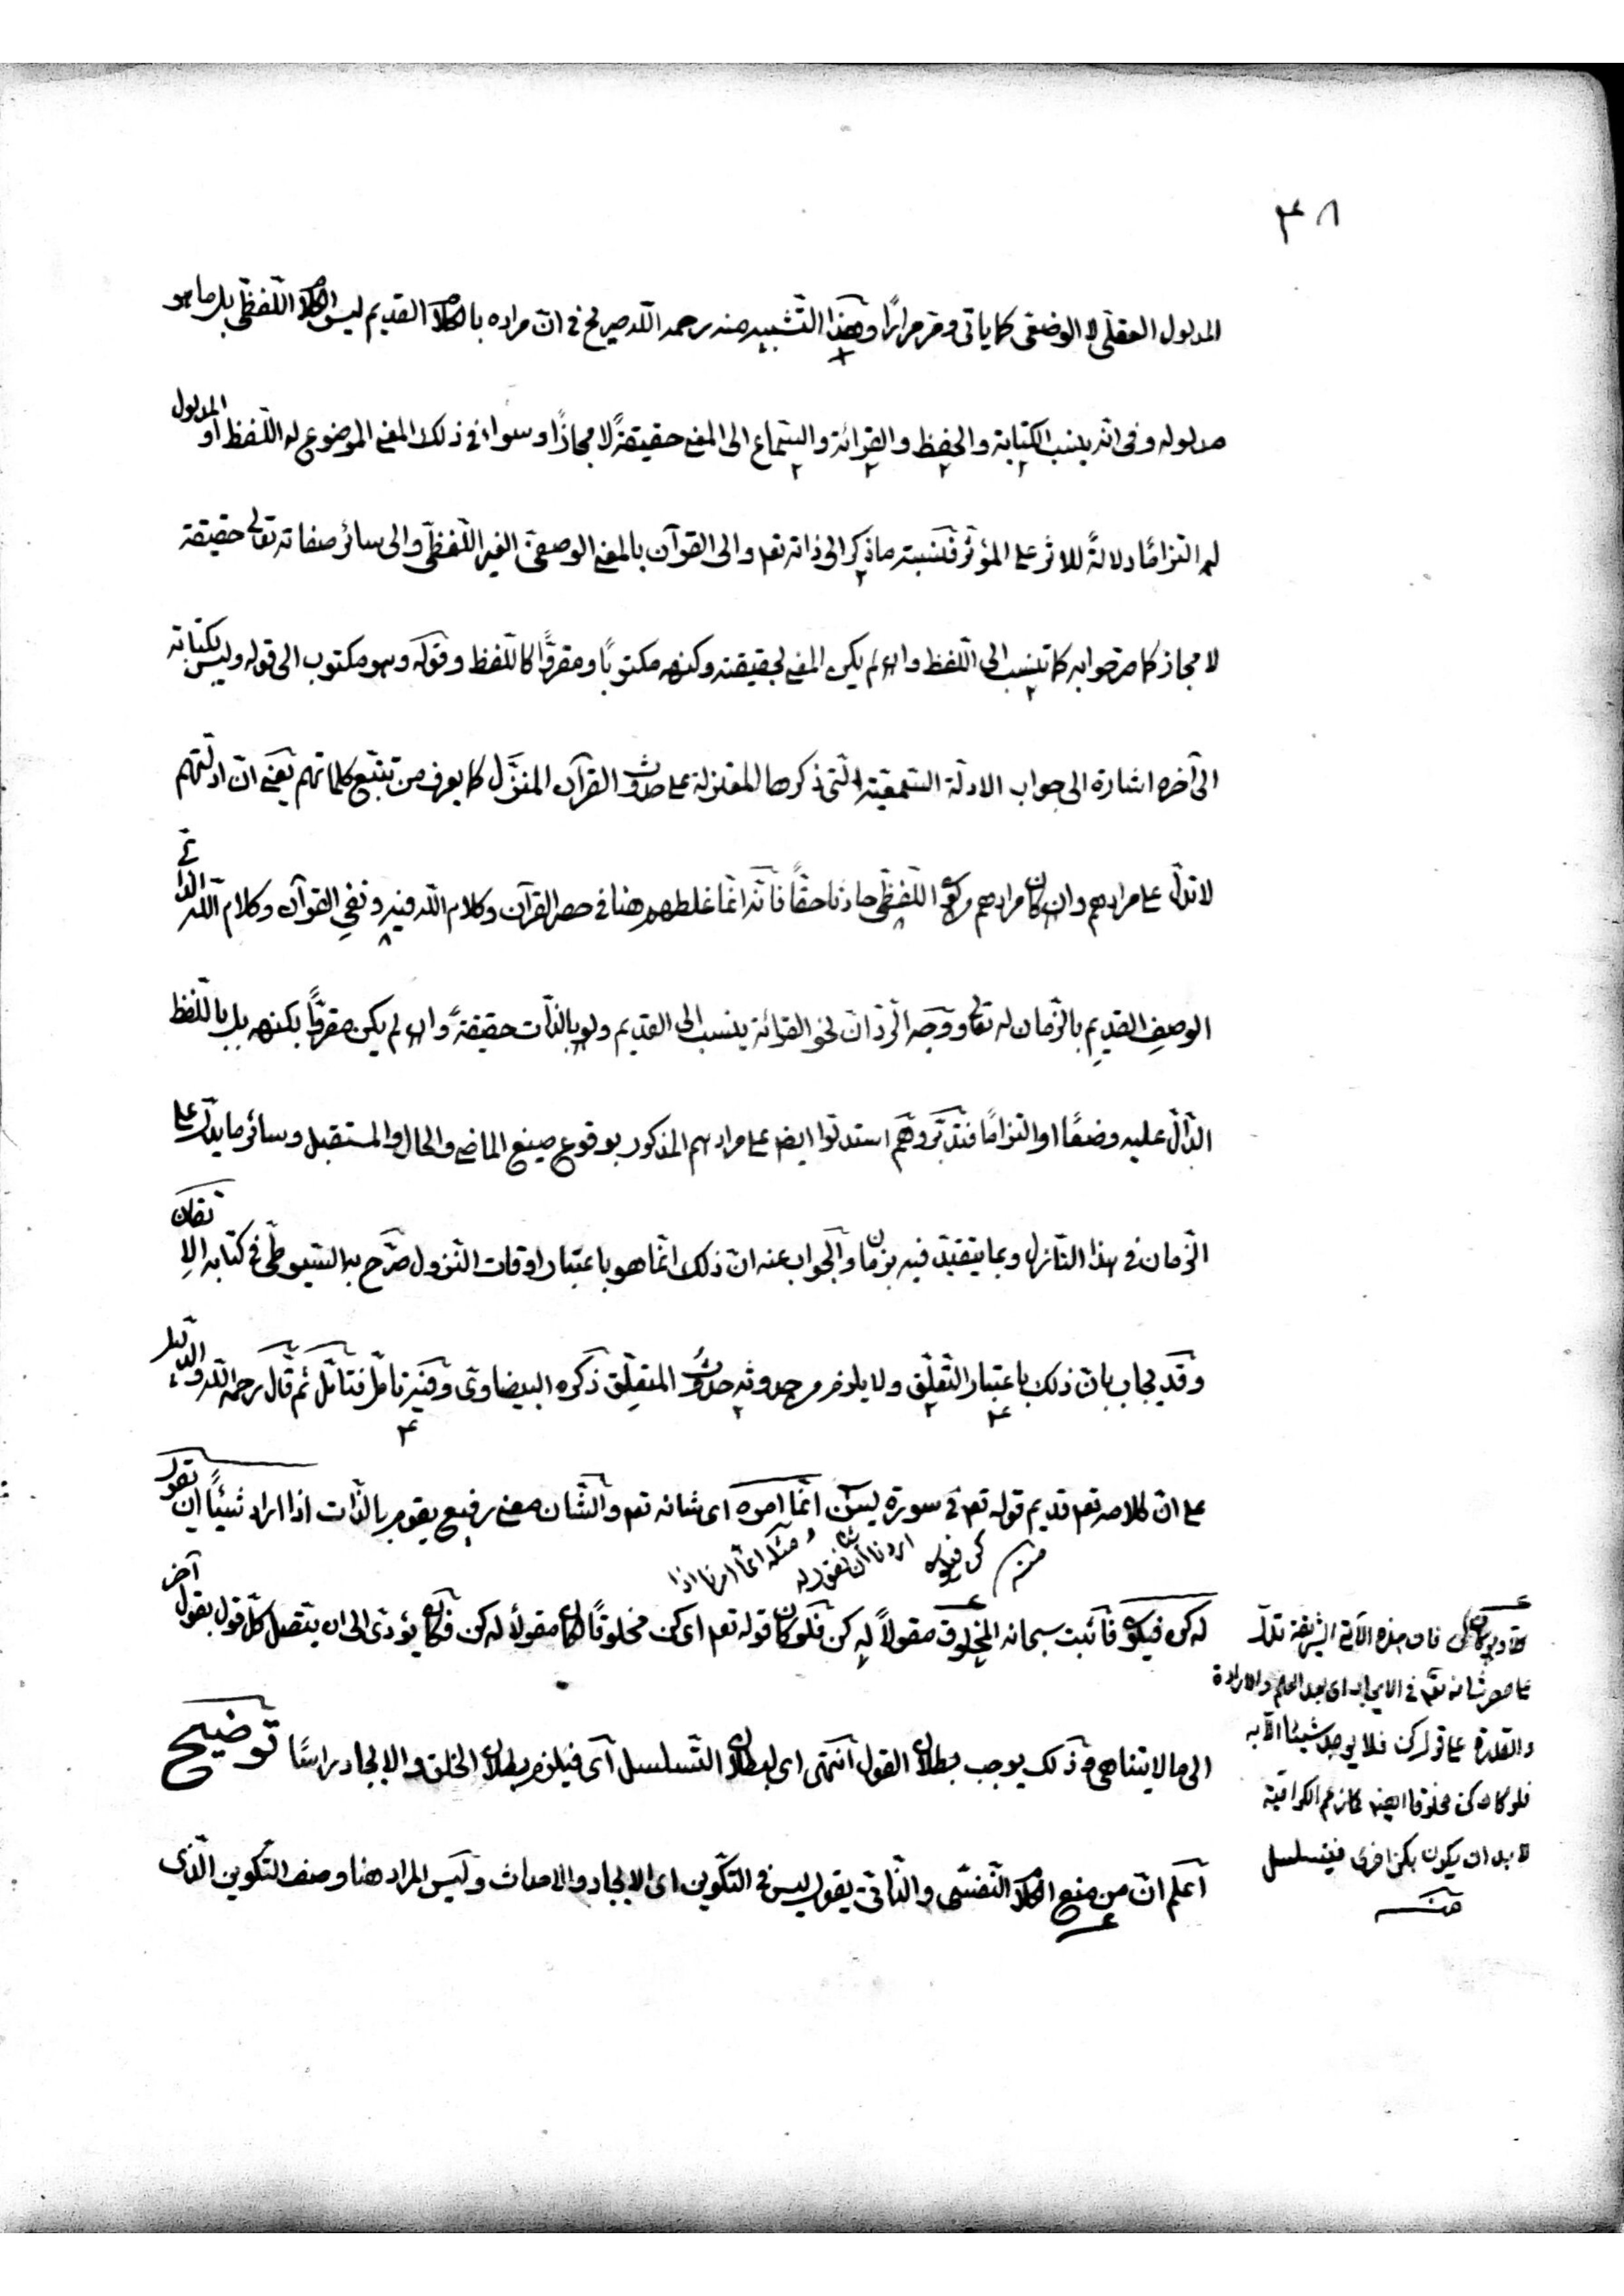 ٣٨
المدلول العقلي لا الوضعي كما ياتي ومر مرارًا وهذا التشبيه منه رحمه الله صريح في ان مراده بالكلام القديم ليس الكلام اللفظي بل ما هو
مدلوله وفي انه ينسب الكتابة والحفظ والقرائة والسماع الى المعنى حقيقةً لا مجازًا وسواء في ذلك المعنى الموضوع له اللفظ او المدلول
له التزامًا دلالةً للاثر على المؤثر فنسبة ما ذكر الى ذاته تعم والى القرآن بالمعنى الوصفي الغير اللفظي والى سائر صفاته تعالى حقيقة
لا مجاز كما مر صوابه كما تنسب الى اللفظ وان لم يكن المعنى بحقيقته وكنهه مكتوبًا ومقروًّا كاللفظ وقوله وهو مكتوب الى قوله وليس بكتابة
الى آخره اشارة الى جواب الادلة السمعية التي ذكرها المعتزلة على حدوث القرآن المنزّل كما يعرف من تتبع كلماتهم يعني ان ادلتهم
لا تدل على مرادهم وان كان مرادهم وكون اللفظي حادثا حقًا فانه انما غلطهم هنا في حصر القرآن وكلام الله فيه ونفي القرآن وكلام الله الذاتي
الوصفي القديم بالزمان له تعالى ووجه الرد ان نحو القرائة ينسب الى القديم ولو بالذات حقيقةً وان لم يكن مقروًّا بكنهه بل باللفظ
الدال عليه وضعًا او التزامًا فتدبر وهم استدلوا ايضا على مرادهم المذكور بوقوع صيغ الماضي والحال والمستقبل وسائر ما يدل على
الزمان في هذا النازل وبما يتقيد فيه بزمان والجواب عنه ان ذلك انما هو باعتبار اوقات النزول صرّح به السيوطي في كتابه الاتقان
وقد يجاب بان ذلك باعتبار التعلّق ولا يلزم من حدوثه حدوث المتعلِق ذكره البيضاوي وفيه تامل فتامل ثم قال رحمه الله والدليل
على ان كلامه تعم قديم قوله تعم في سورة يس انما امره اى شانه تعم والشان معنى رفيع يقوم بالذات اذا اراد شيئًا ان يقول
ومثله انما امرنا اذا اردناه ان نقول له كن فيكون منه
له كن فيكون فأثبت سبحانه المخلوق مقولاً له كن فلو كان قوله تعم اى كن مخلوقًا لكان مقولاً له كن فكان يؤدى الى ان يتصل كل قول بقول آخر
الى ما لا يتناهى وذلك يوجب بطلان القول انتهى اى لبطلان التسلسل اى فيلزم بطلان الخلق والايجاد براسًا توضيح
اعلم ان من منع الكلام النفسي والذاتي يقول ليس في التكوين اى الايجاد والاحداث وليس المراد هنا وصف التكوين الذى
فان هذه الآية الشريفة تدل
على حصر شانه تعم في الايجاد اى بعد العلم والارادة
والقدرة على قول كن فلا يوجد شيئا الا به
فلو كان كن مخلوقا ايضا كما زعم الكرامية
لا بد ان يكون بكن اخرى فيتسلسل
منه